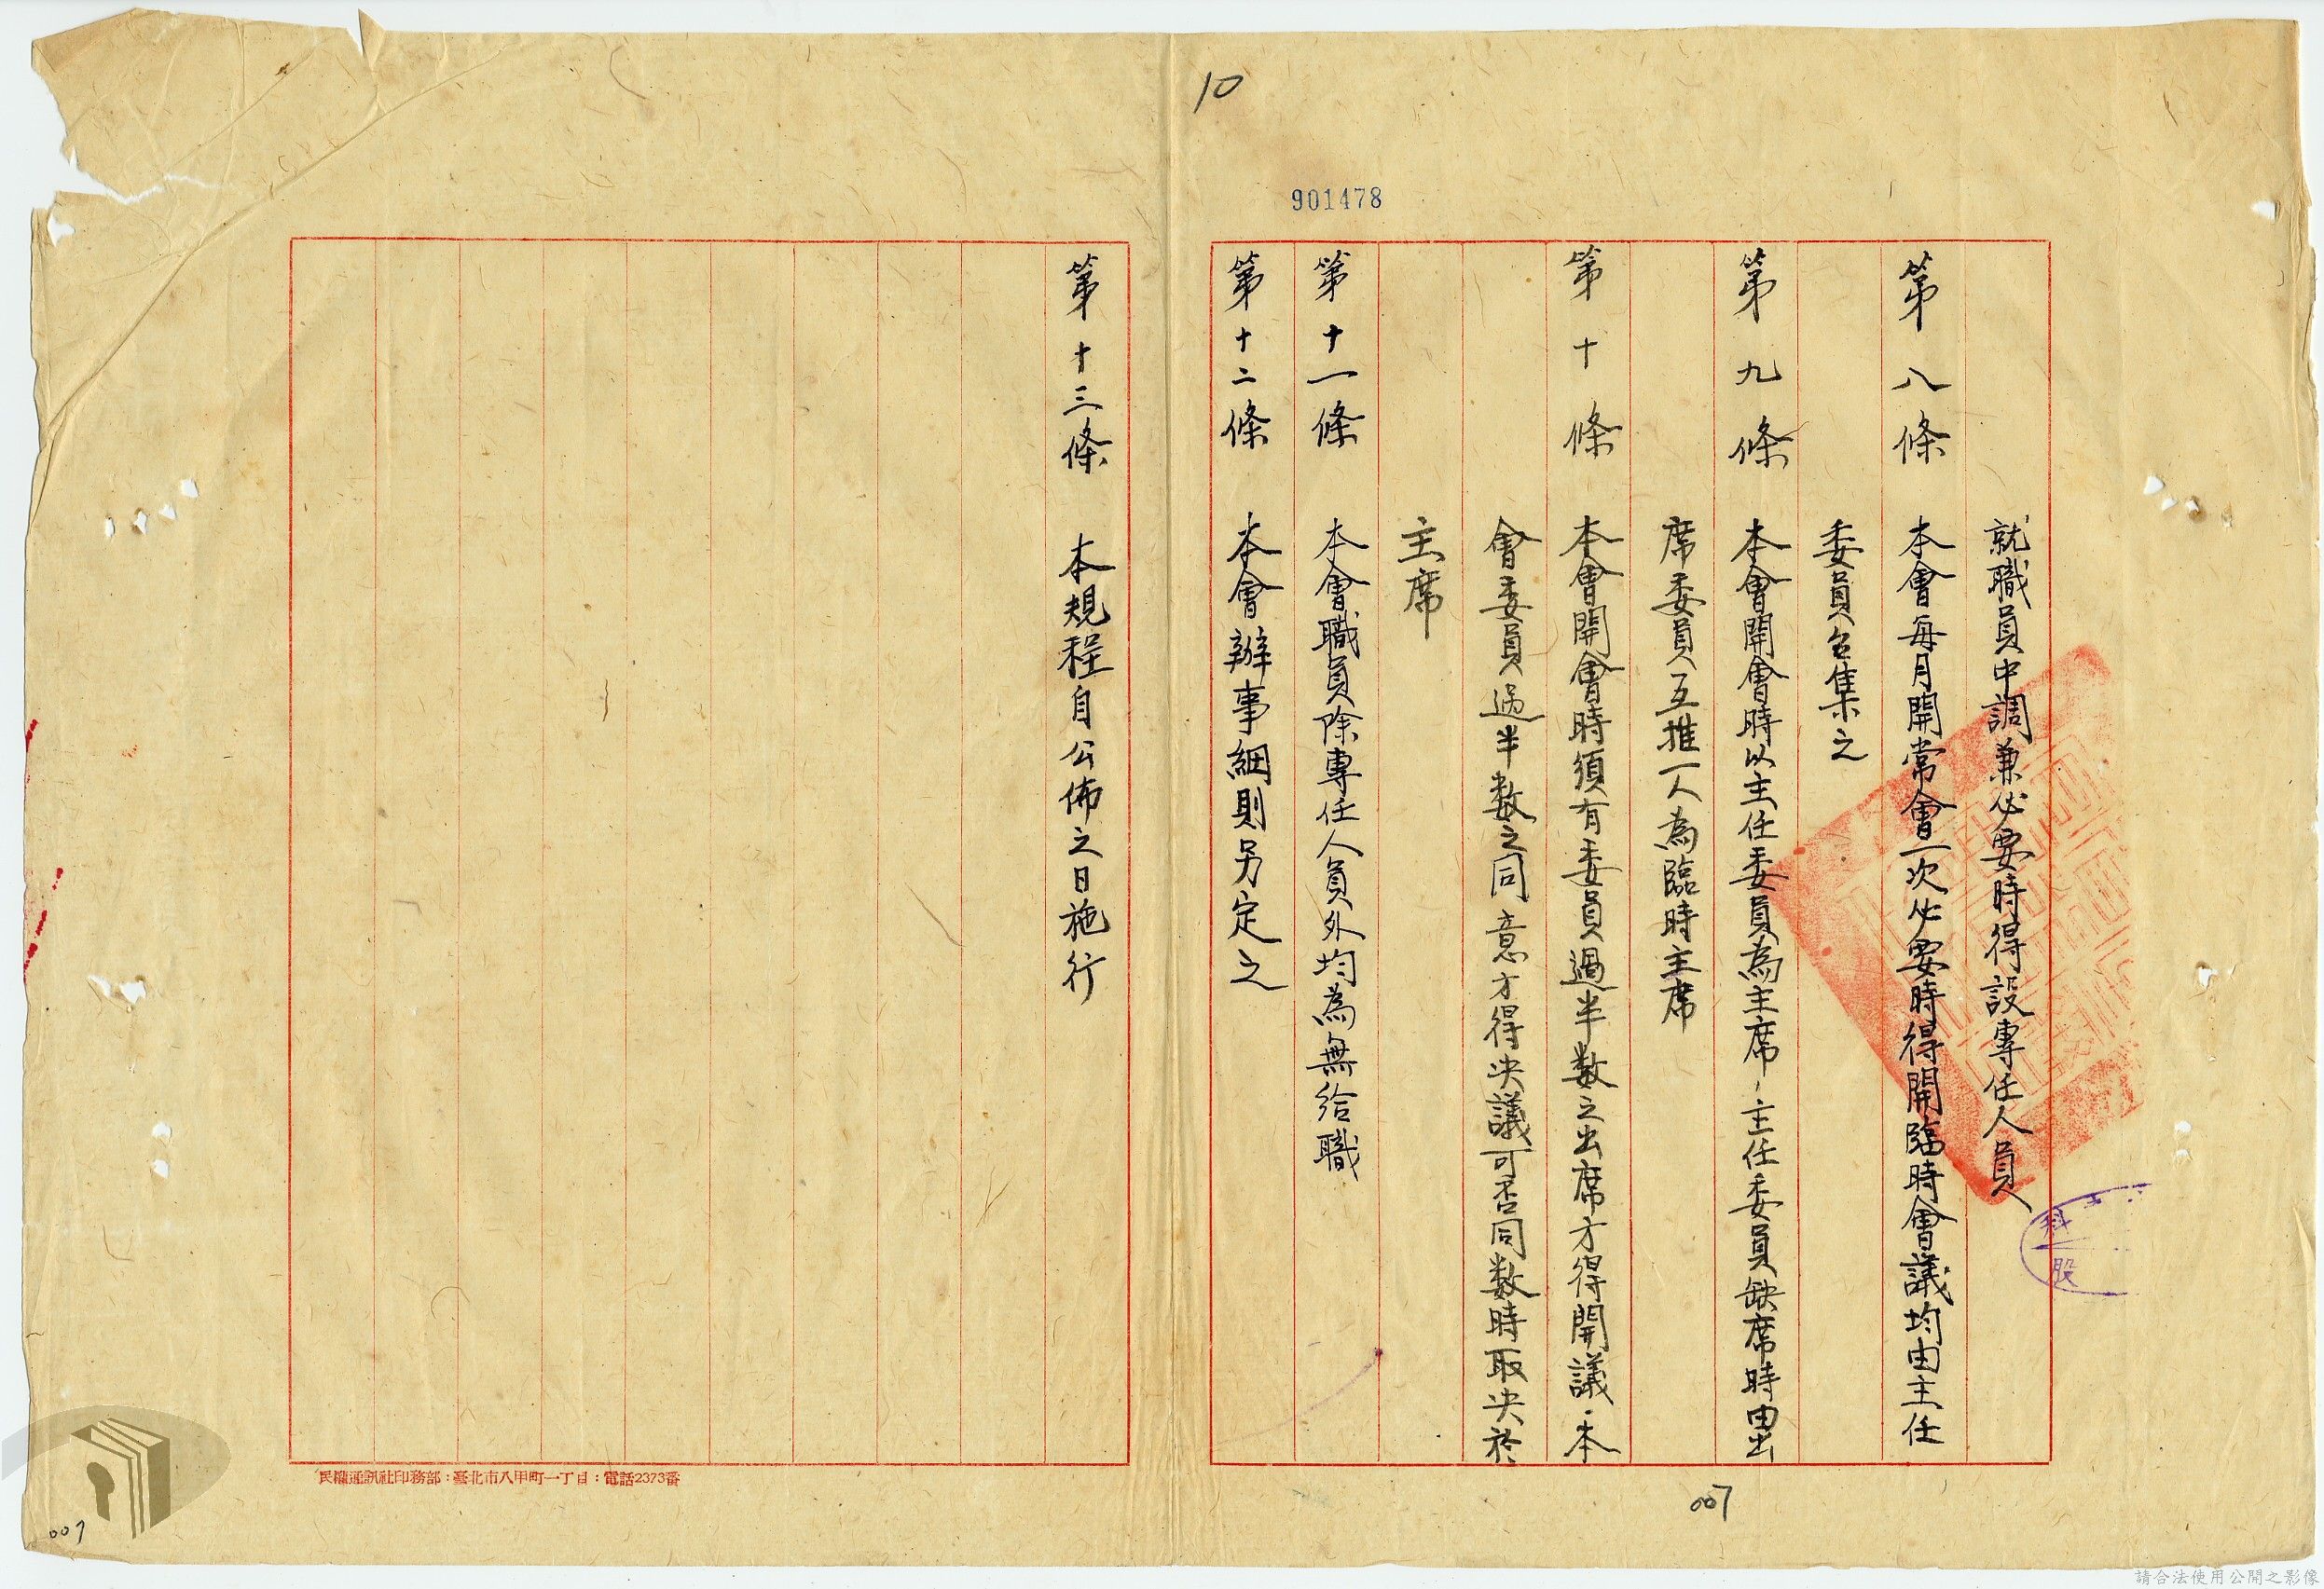 10
901478
就職員中調兼必要時得設專任人員
第八條 本會每月開常會一次必要時得開臨時會議均由主任
委員召集之
第九條 本會開會時以主任委員為主席、主任委員缺席時由出
席委員互推一人為臨時主席
第十條 本會開會時須有委員過半数之出席方得開議、本
會委員過半数之同意方得決議可否同数時取決於
主席
第十一條 本會職員除專任人員外均為無給職
第十二條 本會辦事細則另定之
第十三條 本規程自公佈之日施行
科
股
007
民權通訊社印務部：臺北市八甲町一丁目：電話2373番
007
請合法使用公開之影像